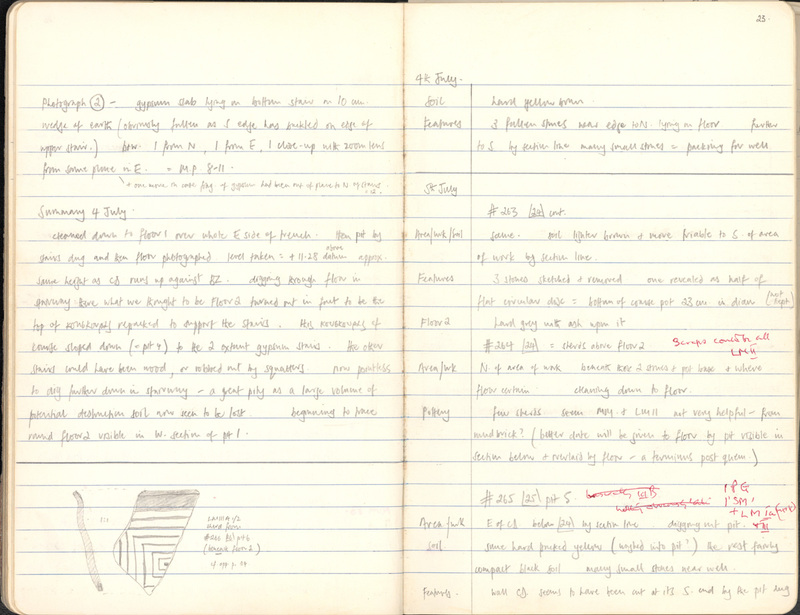 Photograph ② – gypsum slab lying on bottom stair on 10 cm.
wedge of earth (obviously fallen as S edge has buckled on edge of
upper stair.) b+w. 1 from N, 1 from E, 1 close-up with zoom lens
from same place in E. = MP 8-11.
+ one more in case frag. of gypsum had been out of place to N of stairs
Summary 4 July.
cleaned down to floor 1 over whole E side of trench. then pit by
stairs dug and then floor photographed level taken = + 11.25 above datum approx.
same height as runs up against digging through floor in
stairway here what we thought to be Floor 2 turned out in fact to be the
top of repacked to support the stairs. This of
course sloped down (= pit 4) to the 2 extant gypsum stairs. the other
stairs could have been wood, or robbed out by squatters now pointless
to dig further down in stairway – a great pity as a large volume of
potential destruction soil now seen to be lost beginning to trace
round floor 2 visible in W. section of pit 1.
LMIIIA 1/2
from
pit 6
(beneath floor 2)
cf opp p. 24
23.
4th July.
Soil hard yellow brown
Features 3 fallen stones near edge to N. lying on floor further
to S. by section line many small stones = packing for well
5th July
# 263 [24] cont.
Area/wk/soil same. soil lighter brown + more friable to S. of area
of work by section line.
Features 3 stones sketched + removed one revealed as half of
flat circular disc = bottom of coarse pot 23 cm in diam (not kept)
Floor 2 hard grey with ash upon it
# 264 [24] = sherds above floor 2
Scraps could be all
LM II
Area/wk N. of area of work beneath these 2 stones + pot base + where
floor certain cleaning down to floor.
Pottery few sherds seem MM. + LM II not very helpful – from
mudbrick? (better date will be given to floor by pit visible in
section below + overlaid by floor – a terminus post quem)
# 265 [25] pit 5.
1 PG
1 'SM'
+ LM Ia
Area/wk E of below [24] by section line digging out pit.
Soil same hard packed yellow (washed into pit?) the rest fairly
compact black soil many small stones near well.
Features wall seems to have been cut at its S. end by the pit dug